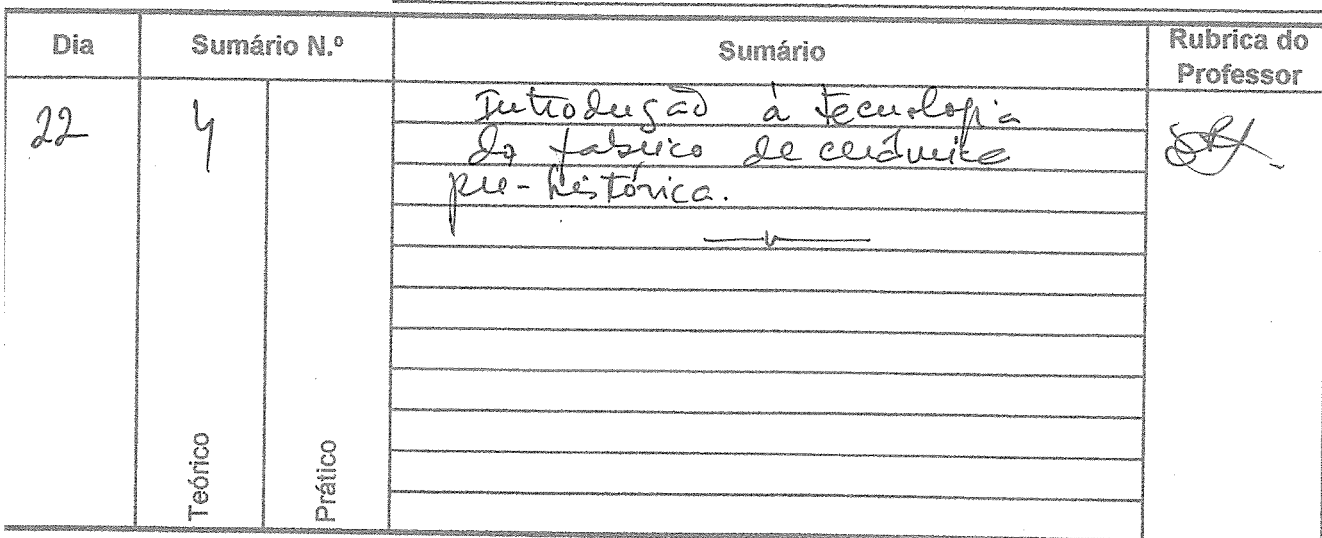 Dia
Sumário N.º
Sumário
Rubrica do
Professor
22
4
Introdução à tecnologia
do fabrico de cerâmica
pré-histórica.
Teórico
Prático